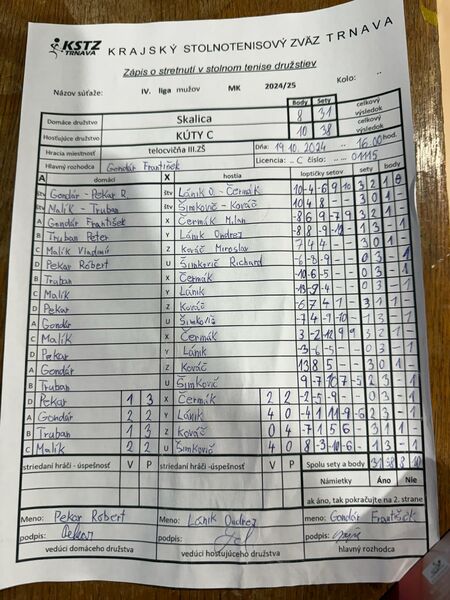 KSTZ TRNAVA KRAJSKÝ STOLNOTENISOVÝ ZVÄZ TRNAVA
Zápis o stretnutí v stolnom tenise družstiev
Názov súťaže: IV. liga mužov MK 2024/25 Kolo: ..
Body Sety celkový výsledok
Domáce družstvo Skalica 8 31
Hosťujúce družstvo KÚTY C 10 38 celkový výsledok
Hracia miestnosť telocvičňa III.ZŠ Dňa: 19.10.2024 16.00 hod.
Hlavný rozhodca Gondár František Licencia: .. C číslo: 01115
A domáci hostia loptičky setov sety body
štv Gondár - Pekar R. štv Láník O. - Čermák 10 -4 -6 9 10 3 2 1 0
štv Malík - Truban štv Šimkovič - Kováč 10 4 8 3 0 1 -
A Gondár František X Čermák Milan -8 6 9 -7 9 3 2 1 -
B Truban Peter Y Láník Ondrej
C Malík Vladimír Z Kováč Miroslav 7 4 4 3 0 1 -
D Pekar Róbert U Šimkovič Richard -6 -8 -9 - 3 - 1
B Truban X Čermák -10 -6 -5 - 3 - 1
C Malík Y Láník
D Pekar Z Kováč -6 7 4 1 3 1 1 -
A Gondár U Šimkovič -7 4 -9 -10 1 3 - 1
C Malík X Čermák 3 -2 -12 9 9 3 2 1 -
D Pekar Y Láník -3 -6 -5 - 3 - 1
A Gondár Z Kováč 13 8 5 3 0 1 -
B Truban U Šimkovič 9 -7 10 7 -5 2 3 - 1
D Pekar 1 3 X Čermák 2 2 -2 -5 -9 - 0 3 - 1
A Gondár 2 2 Y Láník 4 0 -4 11 11 -9 -6 2 3 - 1
B Truban 1 3 Z Kováč 0 4 -7 15 6 3 1 1 -
C Malík 2 2 U Šimkovič 4 0 8 -3 -10 -6 1 3 - 1
striedaní hráči - úspešnosť V P striedaní hráči -úspešnosť V P Spolu sety a body 31 38 8 10
Námietky Áno Nie
ak áno, tak pokračujte na 2. strane
Meno: Pekar Róbert Meno: Láník Ondrej meno: Gondár František
podpis: Pekar podpis: podpis:
vedúci domáceho družstva vedúci hosťujúceho družstva hlavný rozhodca